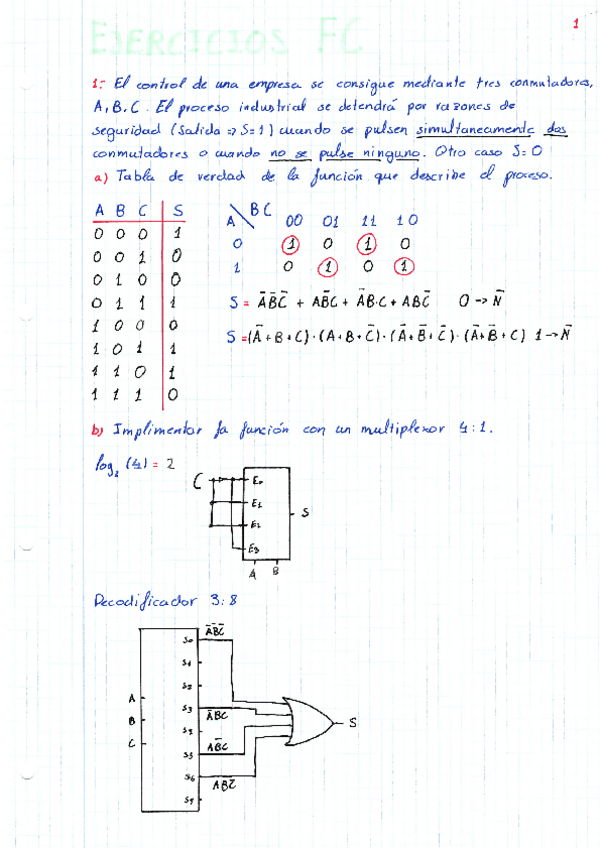 EJERCICIOS FC
1
1:- El control de una empresa se consigue mediante tres conmutadores,
A, B, C. El proceso industrial se detendrá por razones de
seguridad (Salida => S=1) cuando se pulsen simultaneamente dos
conmutadores o cuando no se pulse ninguno. Otro caso S=0
a) Tabla de verdad de la función que describe el proceso.
A B C S
0 0 0 1
0 0 1 0
0 1 0 0
0 1 1 1
1 0 0 0
1 0 1 1
1 1 0 1
1 1 1 0
A \ BC
00 01 11 10
0 1 0 1 0
1 0 1 0 1
S = A̅B̅C̅ + AB̅C + A̅B·C + ABC̅ 0 -> N̅
S = (A̅+B+C)·(A+B+C̅)·(A̅+B̅+C̅)·(A̅+B̅+C) 1 -> N̅
b) Implimentar la función con un multiplexor 4:1.
log₂ (4) = 2
C
E0
E1
E2
E3
S
A B
Decodificador 3:8
A̅B̅C̅
S0
S1
S2
A
S3
A̅BC
B
S2
C
AB̅C
S5
S6
ABC̅
S7
S